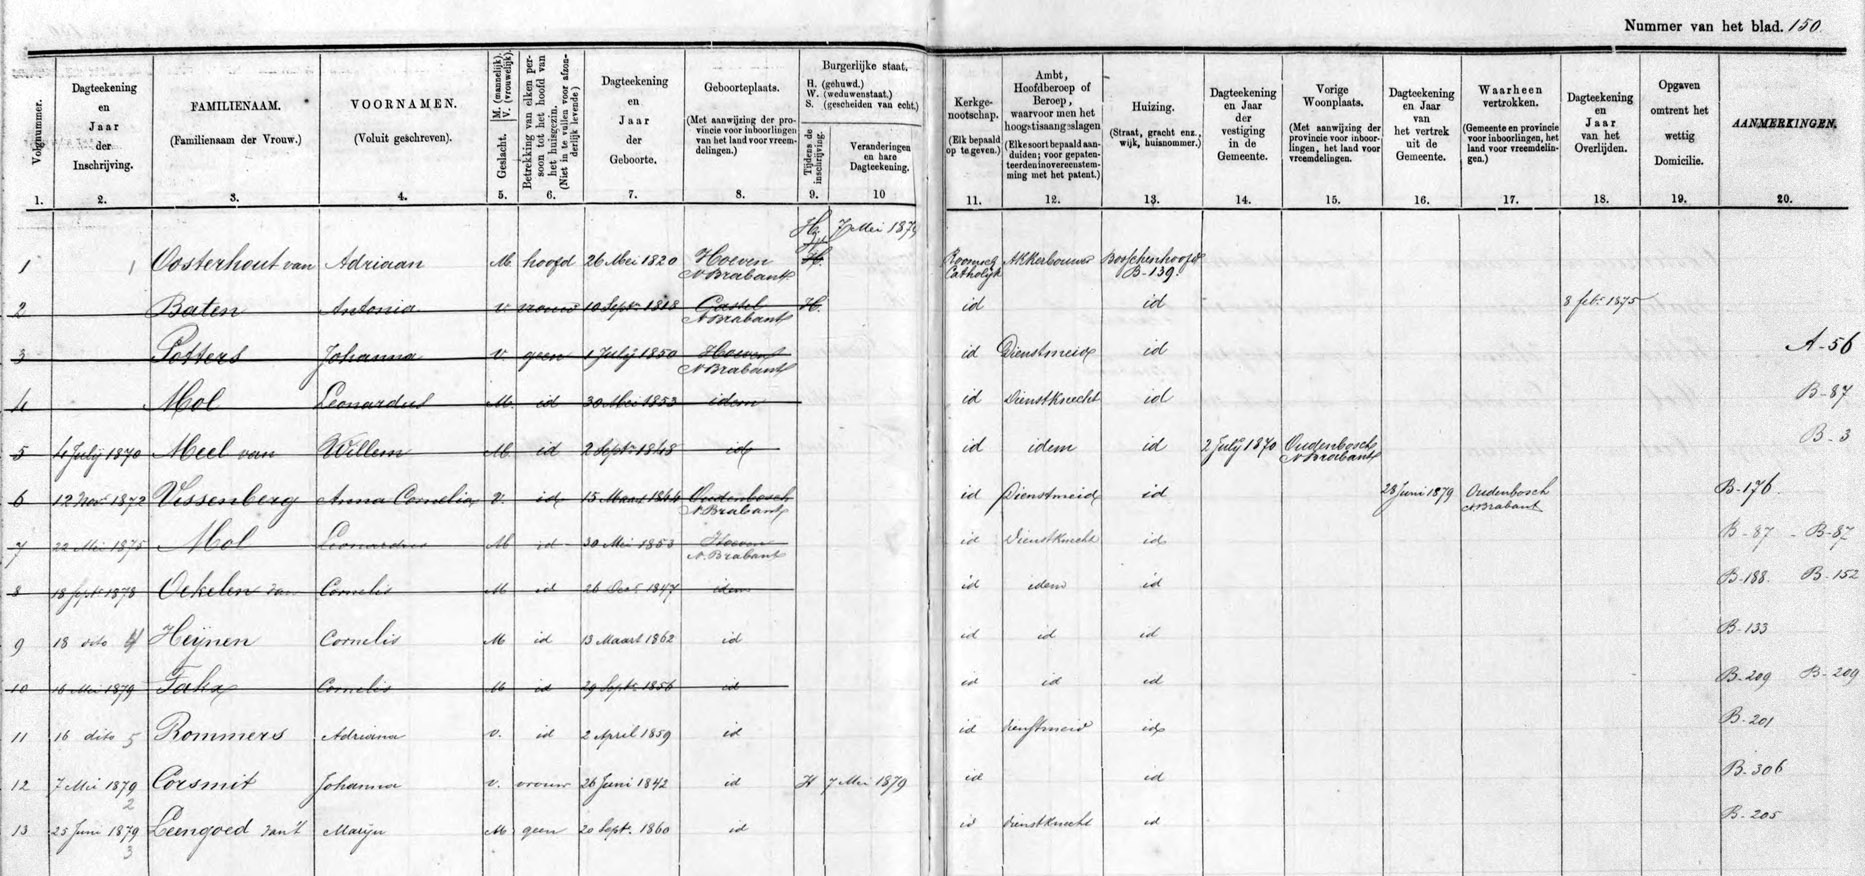 Nummer van het blad. 150
Volgnummer.
Dagteekening
en
Jaar
der
Inschrijving.
FAMILIENAAM.
(Familienaam der Vrouw.)
VOORNAMEN.
(Voluit geschreven).
Geslacht. M. (mannelijk) V. (vrouwelijk).
Betrekking van elken per-
soon tot het hoofd van
het huisgezin.
(Niet in te vullen voor afzon-
derlijk levende)
Dagteekening
en
Jaar
der
Geboorte.
Geboorteplaats.
(Met aanwijzing der pro-
vincie voor inboorlingen
van het land voor vreem-
delingen.)
Burgerlijke staat.
H. (gehuwd.)
W. (weduwenstaat.)
S. (gescheiden van echt.)
Tijdens de
inschrijving.
Veranderingen
en hare
Dagteekening.
Kerkge-
nootschap.
(Elk bepaald
op te geven.)
Ambt,
Hoofdberoep of
Beroep,
waarvoor men het
hoogst is aangeslagen
(Elke soort bepaald aan-
duiden; voor gepaten-
teerden in overeenstem-
ming met het patent.)
Huizing.
(Straat, gracht enz.,
wijk, huisnommer.)
Dagteekening
en Jaar
der
vestiging
in de
Gemeente.
Vorige
Woonplaats.
(Met aanwijzing der
provincie voor inboor-
lingen, het land voor
vreemdelingen.
Dagteekening
en Jaar
van
het vertrek
uit de
Gemeente.
Waarheen
vertrokken.
(Gemeente en provincie
voor inboorlingen, het
land voor vreemdelin-
gen.)
Dagteekening
en
Jaar
van het
Overlijden.
Opgaven
omtrent het
wettig
Domicilie.
AANMERKINGEN.
1. 2. 3. 4. 5. 6. 7. 8. 9. 10 11. 12. 13. 14. 15. 16. 17. 18. 19. 20.
7 Mei 1879
1 1 Oosterhout van Adriaan M. hoofd 26 Mei 1820 Hoeven H. Roomsch Akkerbouwer Bosschenhoofd
N Brabant Catholijk B-139.
2 Baten Antonia v. vrouw 10 Sept. 1818 Castel H. id id 8 feb. 1875
N Brabant
3 Potters Johanna v. geen 1 July 1850 Hoeven id Dienstmeid id A-56
N Brabant
4 Mol Leonardus M. id 30 Mei 1853 idem id Dienstknecht id B-87
5 4 July 1870 Meel van Willem M id 2 Sept. 1848 id id idem id 2 July 1870 Oudenbosch B-3
N Brabant
6 12 Nov. 1872 Vissenberg Anna Cornelia v. id 15 Maart 1844 Oudenbosch id Dienstmeid id 28 Juni 1879 Oudenbosch B-176.
N Brabant N Brabant
7 22 Mei 1875 Mol Leonardus M id 30 Mei 1853 Hoeven id Dienstknecht id B-87 - B-87
N. Brabant
8 18 Sept 1878 Oekelen van Cornelis M id 26 Oct. 1847 idem id idem id B-188. B-152
9 18 dito 4 Heijnen Cornelis M id 13 Maart 1862 id id id id B-133
10 16 Mei 1879 Takx Cornelis M id 29 Sept. 1856 id id id id B-209 B-209
11 16 dito 5 Rommers Adriana v. id 2 April 1859 id id dienstmeid id B-201
12 7 Mei 1879 Corsmit Johanna v. vrouw 26 Juni 1842 id H 7 Mei 1879 id id B-306
2
13 25 Juni 1879 Leengoed van 't Marijn M geen 20 Sept. 1860 id id dienstknecht id B-205
3